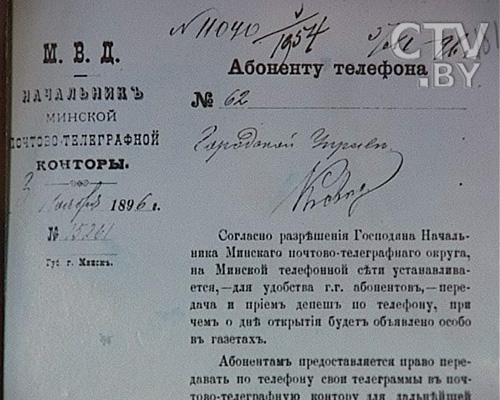 CTV.BY
№ 11040
3/1954
М. В. Д.
НАЧАЛЬНИКЪ
МИНСКОЙ
ПОЧТОВО-ТЕЛЕГРАФНОЙ
КОНТОРЫ.
3 Ноября 1896 г.
№ 15261
Губ. г. Минскъ.
Абоненту телефона
№ 62
Городской Управы
Согласно разрѣшенія Господина Началь-
ника Минскаго почтово-телеграфнаго округа,
на Минской телефонной сѣти устанавлива-
ется,—для удобства г.г. абонентовъ,—пере-
дача и пріемъ депешъ по телефону, при
чемъ о днѣ открытія будетъ объявлено особо
въ газетахъ.
Абонентамъ предоставляется право пере-
давать по телефону свои телеграммы въ поч-
тово-телеграфную контору для дальнѣйшей